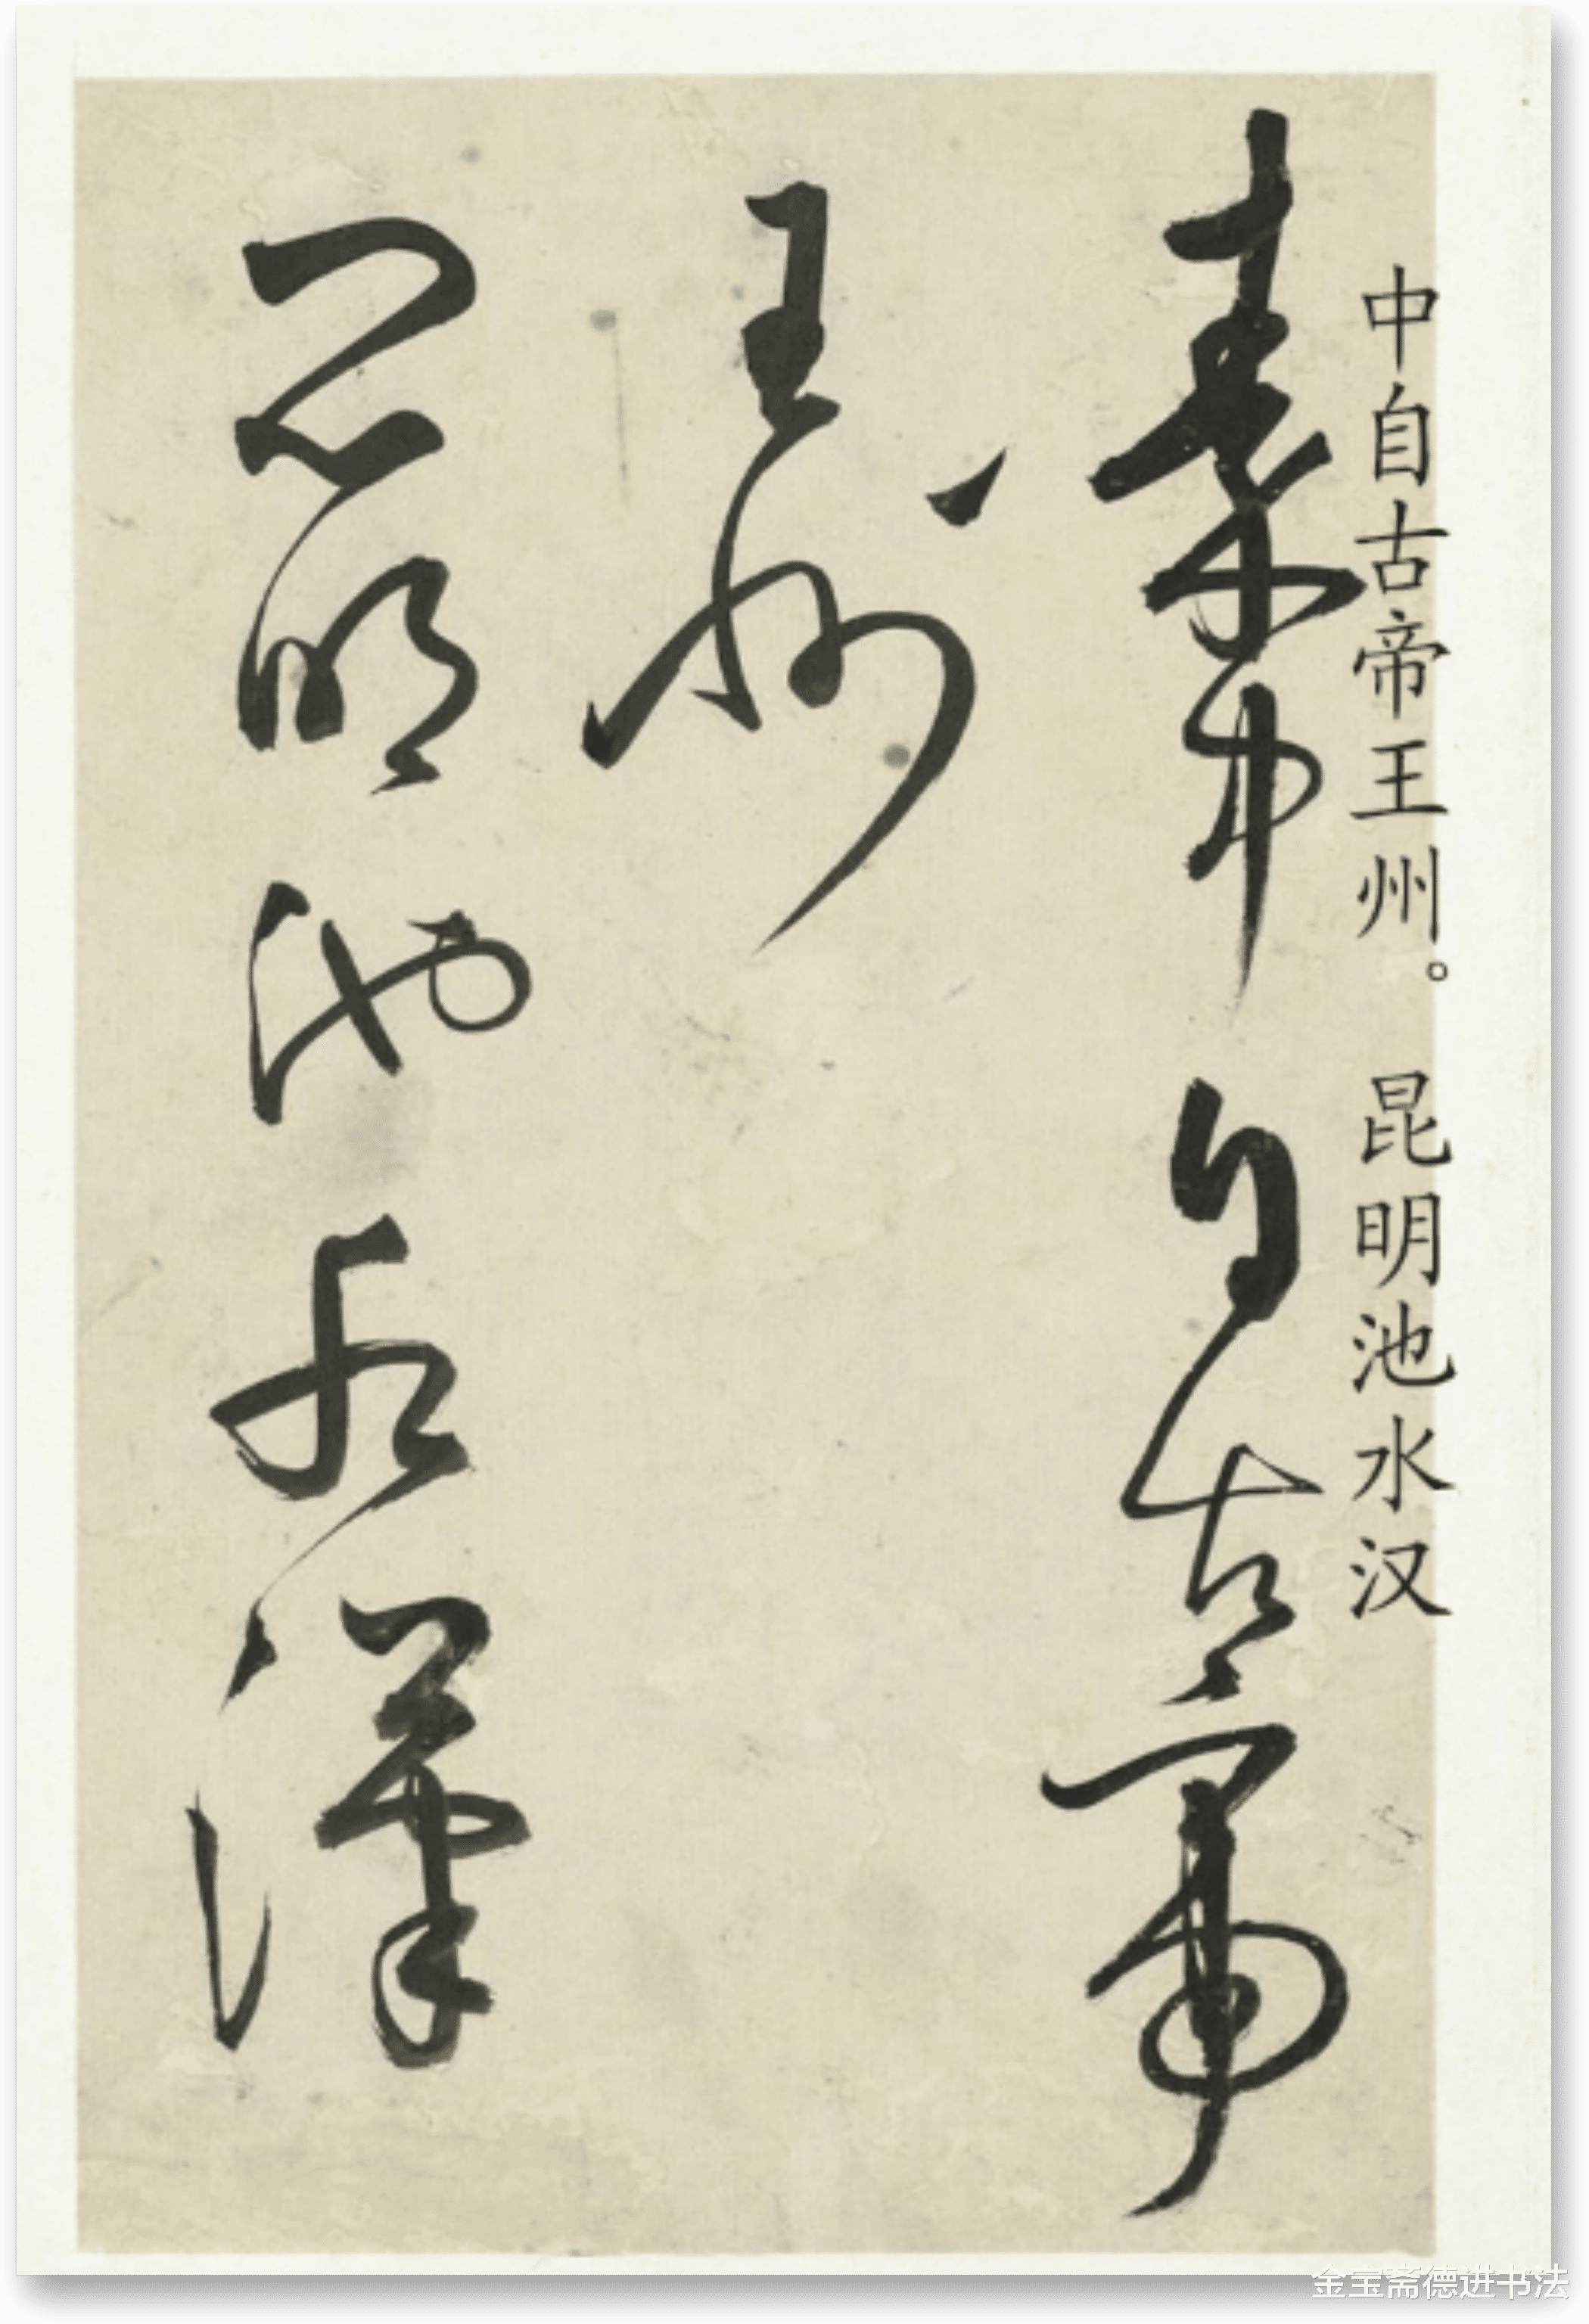 中自古帝王州。昆明池水汉
秦中自古帝
王州
昆明池水漢
金宝斋德进书法